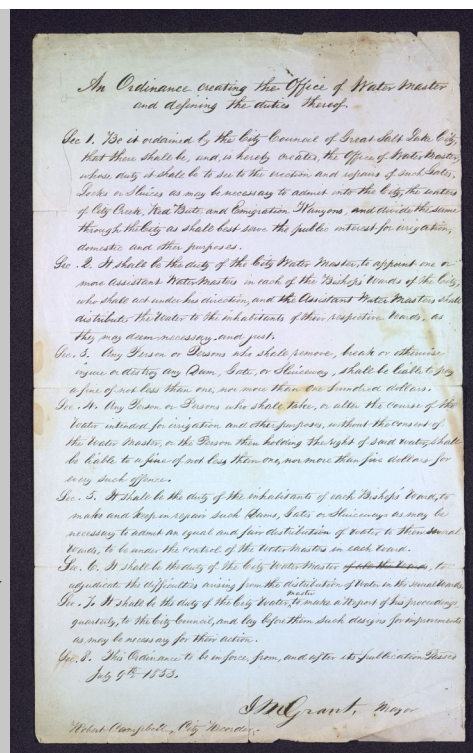 An Ordinance creating the Office of Water Master
and defining the duties thereof.
Sec 1. Be it ordained by the City Council of Great Salt Lake City,
that there shall be, and is hereby created, the Office of Water Master,
whose duty it shall be to see to the erection and repairs of such Gates,
Locks or Sluices as may be necessary to admit into the City, the waters
of City Creek, Red Bute, and Emigration Kanyons, and divide the same
through the City as shall best serve the public interest for irrigation,
domestic and other purposes.
Sec. 2. It shall be the duty of the City Water Master, to appoint one or
more assistant Water Masters in each of the Bishops Wards of the City,
who shall act under his direction, and the Assistant Water Masters shall
distribute the Water to the inhabitants of their respective Wards, as
they may deem necessary and just.
Sec. 3. Any Person or Persons who shall remove, break or otherwise
injure or destroy any Dam, Gate, or Sluiceway, shall be liable to pay
a fine of not less than one, nor more than One hundred dollars.
Sec. 4. Any Person or Persons who shall take, or alter the course of the
Water intended for irrigation and other purposes, without the consent of
the Water Master, or the Person then holding the right of said water, shall
be liable to a fine of not less than one, nor more than five dollars for
every such offence.
Sec. 5. It shall be the duty of the inhabitants of each Bishops Ward, to
make and keep in repair such Dams, Gates or Sluiceways as may be
necessary to admit an equal and fair distribution of water to their several
Wards, to be under the control of the Water Masters in each Ward.
Sec. 6. It shall be the duty of the City Water Master to
adjudicate the difficulties arising from the distribution of Water in the several Wards.
Sec. 7. It shall be the duty of the City Water master, to make a Report of his proceedings
quarterly, to the City Council, and lay before them such designs for improvements
as may be necessary for their action.
Sec. 8. This Ordinance to be in force, from, and after its publication Passed
July 9th 1853.
J M Grant, Mayor
Robert Campbell, City Recorder.